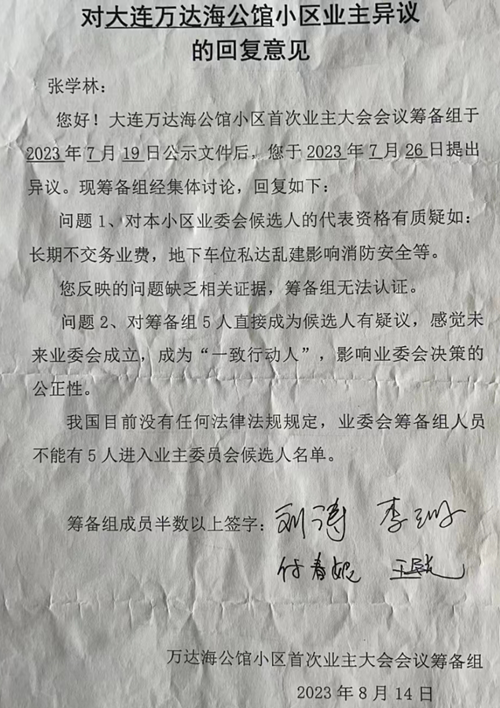 对大连万达海公馆小区业主异议
的回复意见
张学林：
您好！大连万达海公馆小区首次业主大会会议筹备组于
2023年7月19日公示文件后，您于2023年7月26日提出
异议。现筹备组经集体讨论，回复如下：
问题1、对本小区业委会候选人的代表资格有质疑如：
长期不交务业费，地下车位私达乱建影响消防安全等。
您反映的问题缺乏相关证据，筹备组无法认证。
问题2、对筹备组5人直接成为候选人有疑议，感觉未
来业委会成立，成为“一致行动人”，影响业委会决策的
公正性。
我国目前没有任何法律法规规定，业委会筹备组人员
不能有5人进入业主委员会候选人名单。
筹备组成员半数以上签字：刘涛
万达海公馆小区首次业主大会会议筹备组
2023年8月14日